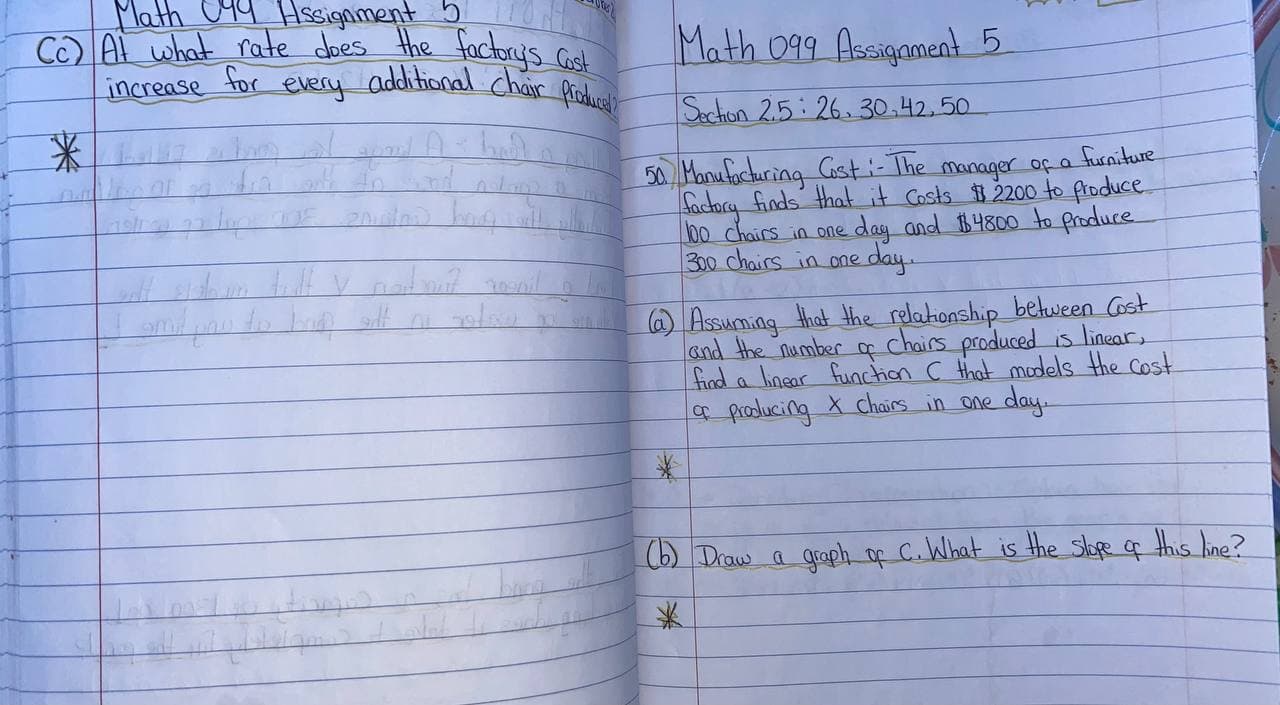 Math 099 Assignment 5
(c) At what rate does the factory's Cost
increase for every additional chair produced?
Math 099 Assignment 5
Section 2.5 : 26, 30, 42, 50
50) Manufacturing Cost :- The manager of a furniture
factory finds that it Costs $2200 to produce
100 chairs in one day and $4800 to produce
300 chairs in one day.
(a) Assuming that the relationship between Cost
and the number of Chairs produced is linear,
find a linear function C that models the Cost
of producing X Chairs in one day.
(b) Draw a graph of C. What is the slope of this line?